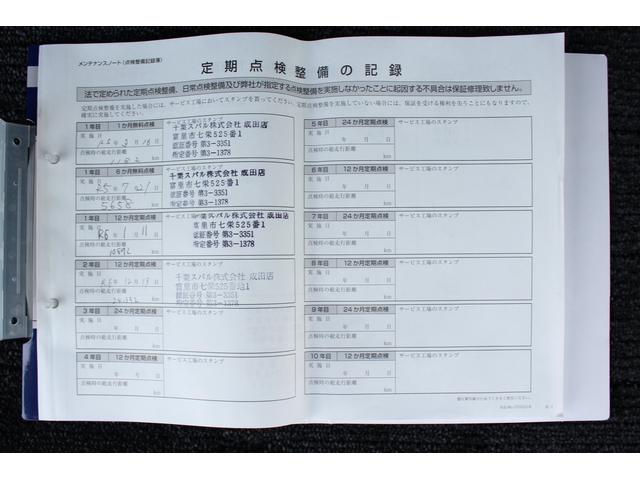 メンテナンスノート(点検整備記録簿)
定期点検整備の記録
法で定められた定期点検整備、日常点検整備及び弊社が指定する点検整備を実施しなかったことに起因する不具合は保証修理致しません。
定期点検整備を実施した場合には、サービス工場においてスタンプを貰ってください。定期点検整備を実施していない場合には、保証を受ける権利を失うことにもなりますので、
確実に実施してください。
1年目 1か月無料点検 サービス工場のスタンプ
千葉スバル株式会社 成田店
実施日
富里市七栄525番1
年 3月 16日
認証番号 第3-3351
点検時の総走行距離
指定番号 第3-1378
km
1年目 6か月無料点検 サービス工場のスタンプ
千葉スバル株式会社 成田店
実施日
富里市七栄525番1
R5年 7月 21日
認証番号 第3-3351
点検時の総走行距離
指定番号 第3-1378
5658 km
1年目 12か月定期点検 サービス工場のスタンプ
千葉スバル株式会社 成田店
実施日
富里市七栄525番1
R6年 1月 11日
認証番号 第3-3351
点検時の総走行距離
指定番号 第3-1378
km
2年目 24か月定期点検 サービス工場のスタンプ
千葉スバル株式会社 成田店
実施日
富里市七栄525番地1
年 12月 日
認証番号 第3-3351
点検時の総走行距離
指定番号 第3-1378
km
3年目 24か月定期点検 サービス工場のスタンプ
実施日
年 月 日
点検時の総走行距離
km
4年目 12か月定期点検 サービス工場のスタンプ
実施日
年 月 日
点検時の総走行距離
km
5年目 24か月定期点検 サービス工場のスタンプ
実施日
年 月 日
点検時の総走行距離
km
6年目 12か月定期点検 サービス工場のスタンプ
実施日
年 月 日
点検時の総走行距離
km
7年目 24か月定期点検 サービス工場のスタンプ
実施日
年 月 日
点検時の総走行距離
km
8年目 12か月定期点検 サービス工場のスタンプ
実施日
年 月 日
点検時の総走行距離
km
9年目 24か月定期点検 サービス工場のスタンプ
実施日
年 月 日
点検時の総走行距離
km
10年目 12か月定期点検 サービス工場のスタンプ
実施日
年 月 日
点検時の総走行距離
km